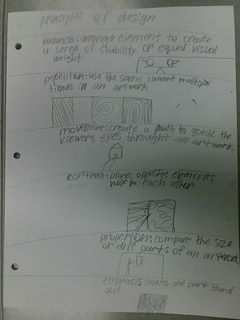 principles of design
balance: arrange element to create
a sense of stability or equal visual
weight
repetition: use the same element multiple
times in an artwork
movement: create a path to guide the
viewers eyes throught an artwork
place opposite elements
next to each other
proportion: compare the size
of diff parts of an artwork
emphasis: make one part stand
out